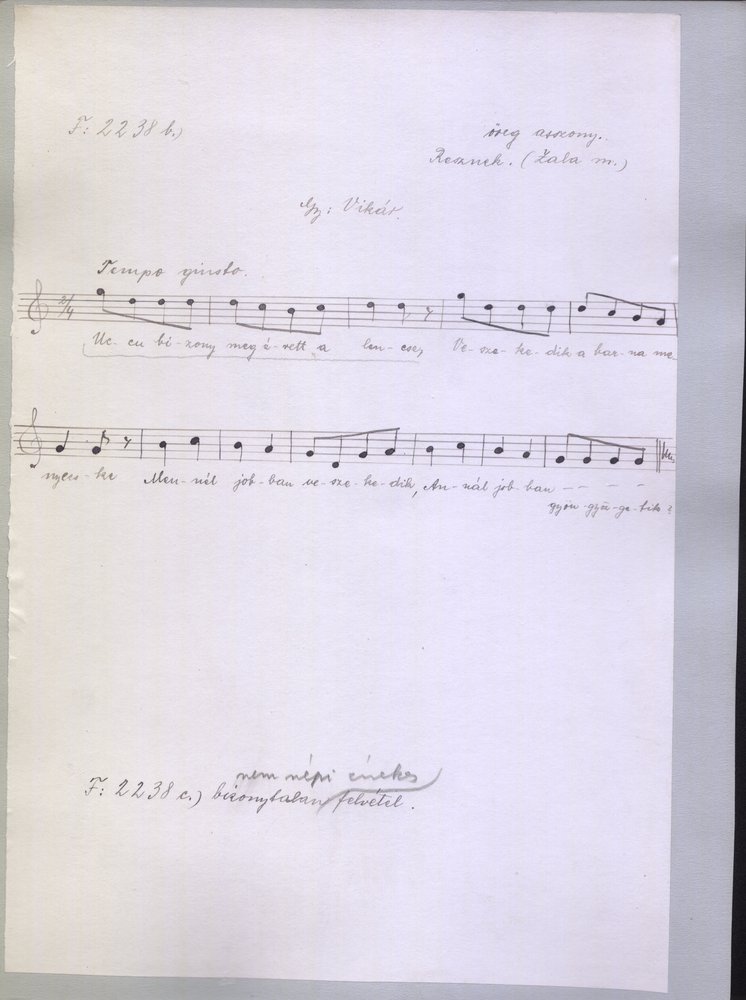 F: 2238 b.)
öreg asszony.
Resznek. (Zala m.)
Gy: Vikár.
Tempo giusto.
2/4
Uc-cu bi-zony meg é-rett a len-cse, Ve-sze-ke-dik a bar-na me-
nyecs-ke Men-nél job-ban ve-sze-ke-dik, An-nál job-ban — — — —
gyön-gyö-ge-tik ?
nem népi énekes
F: 2238 c.) bizonytalan felvétel.